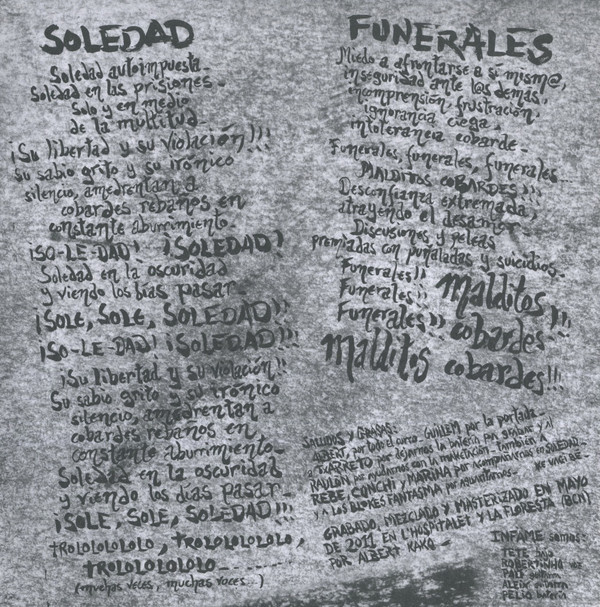 SOLEDAD
Soledad autoimpuesta_
Soledad en las prisiones_
Solo y en medio
de la multitud_
¡Su libertad y su violación!!!
Su sabio grito y su irónico
silencio, amedrentan a
cobardes rebaños en
constante aburrimiento_
¡SO-LE-DAD! ¡SOLEDAD!
Soledad en la oscuridad
y viendo los días pasar_
¡SOLE, SOLE, SOLEDAD!!!
¡SO-LE-DAD! ¡SOLEDAD!!!
¡Su libertad y su violación!!
Su sabio grito y su irónico
silencio, amedrentan a
cobardes rebaños en
constante aburrimiento_
Soledad en la oscuridad
y viendo los días pasar_
¡SOLE, SOLE, SOLEDAD!!!
tROLOLOLOLO, tROLOLOLOLO,
tROLOLOLOLO......
(muchas veces, muchas veces...)
FUNERALES
Miedo a afrontarse a sí mism@,
inseguridad ante l@s demás,
incomprensión, frustración,
ignorancia ciega,
intolerancia cobarde_
Funerales, funerales, funerales...
MALDITOS COBARDES!!!
Desconfianza extremada,
atrayendo el desamor_
Discusiones y peleas
premiadas con puñaladas y suicidios_
Funerales!!
Funerales!!
Funerales!!
Malditos
cobardes!!!
Malditos cobardes!!!
SALUDOS Y GRACIAS:
ALBERT, por todo el curro_ GUILLEM por la portada_
a TXARRETO por dejarnos la batería
RAULÓN por ayudarnos con la maketación_ También a
REBE, CONCHI y MARINA por acompañarnos en SOLEDAD_
y A LOS BLOKES FANTASMA por aguantarnos_
GRABADO, MEZCLADO Y MASTERIZADO EN MAYO
DE 2011 EN L'HOSPITALET Y LA FLORESTA (BCN)
POR ALBERT KAKO_
INFAME somos:
TETE bajo
ROBERTINHO voz
POLF guitarra
ALEIX guitarra
PELIO batería